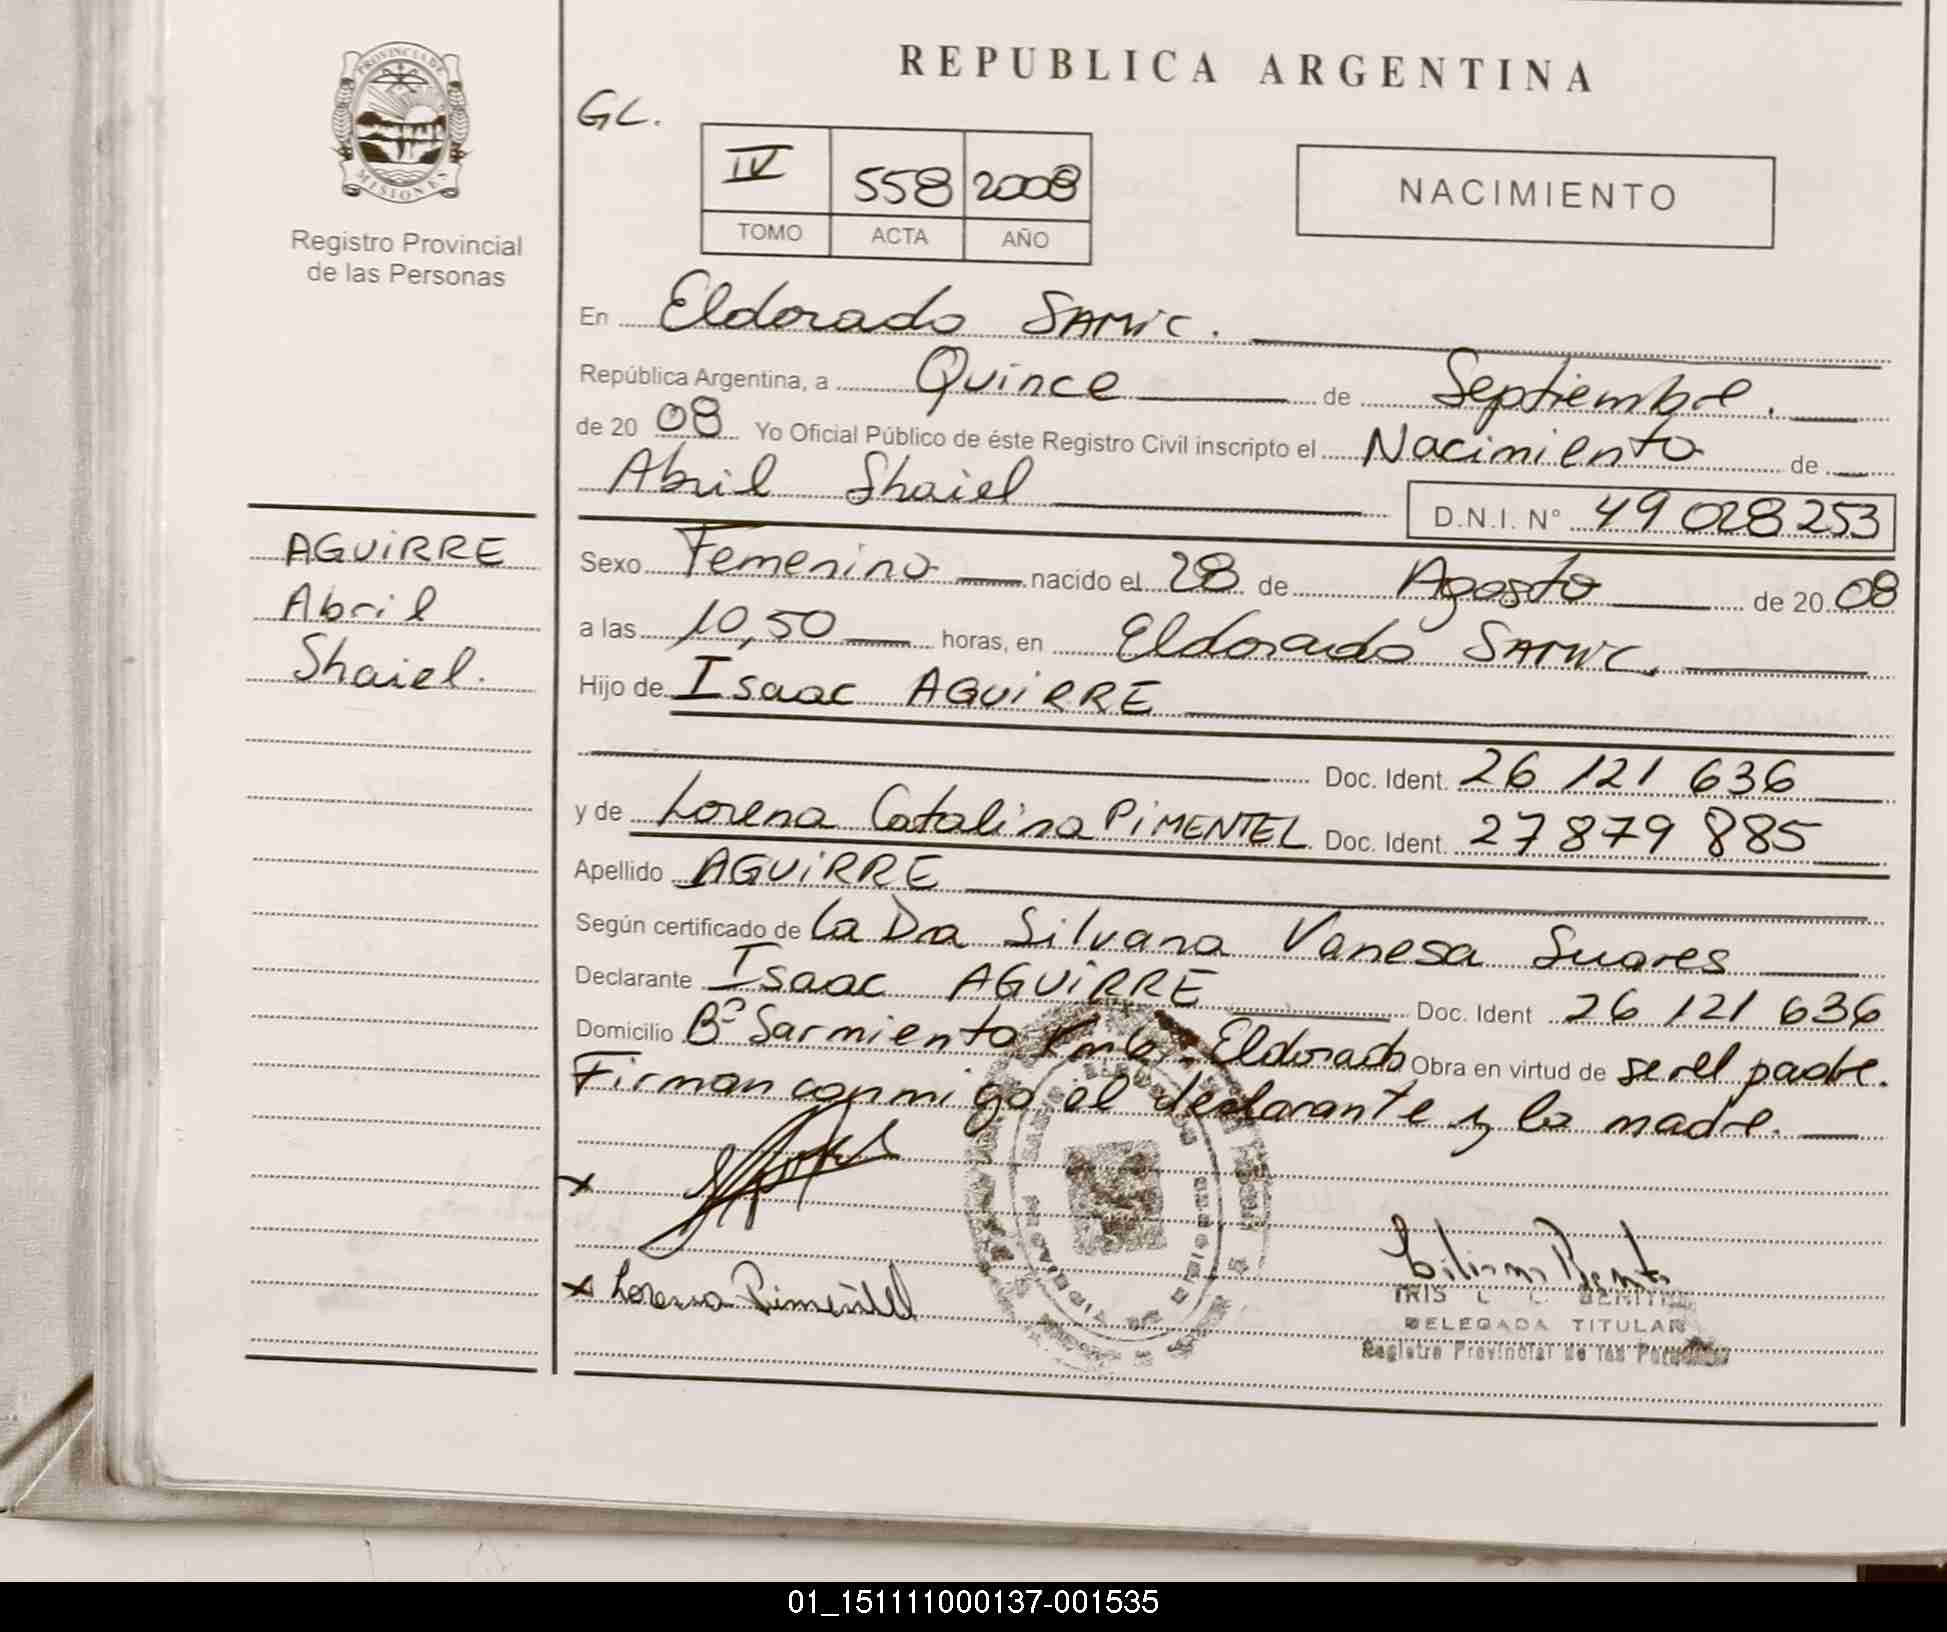 REPUBLICA ARGENTINA
PROVINCIA DE
MISIONES
Registro Provincial
de las Personas
GL.
IV 558 2008
TOMO ACTA AÑO
NACIMIENTO
En Eldorado SAMiC.
República Argentina, a Quince de Septiembre.
de 20 08 Yo Oficial Público de éste Registro Civil inscripto el Nacimiento de
Abril Shaiel D.N.I. N° 49 028 253
AGUiRRE
Abril
Shaiel.
Sexo Femenino nacido el 28 de Agosto de 20 08
a las 10,50 horas, en Eldorado SAMiC.
Hijo de Isaac AGUiRRE
Doc. Ident. 26 121 636
y de Lorena Catalina PiMENTEL Doc. Ident. 27 879 885
Apellido AGUiRRE
Según certificado de la Dra Silvana Vanesa Suares
Declarante Isaac AGUiRRE Doc. Ident 26 121 636
Domicilio Bº Sarmiento Eldorado Obra en virtud de ser el padre.
Firman conmigo el declarante y la madre.
x
x Lorena Pimentel
IRIS L. L.
DELEGADA TITULAR
Registro Provincial de las Personas
01_151111000137-001535